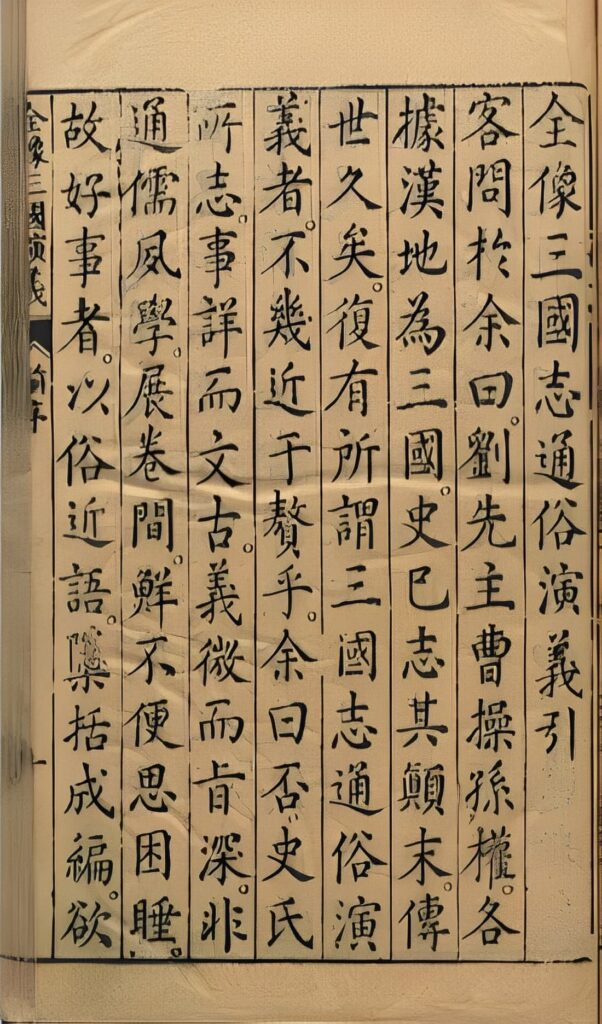 全像三國志通俗演義引
客問於余曰。劉先主曹操孫權。各
據漢地為三國。史已志其顛末。傳
世久矣。復有所謂三國志通俗演
義者。不幾近于贅乎。余曰否。史氏
所志。事詳而文古。義微而旨深。非
通儒夙學。展卷間。鮮不便思困睡。
故好事者。以俗近語。檃括成編。欲
全像三國演義